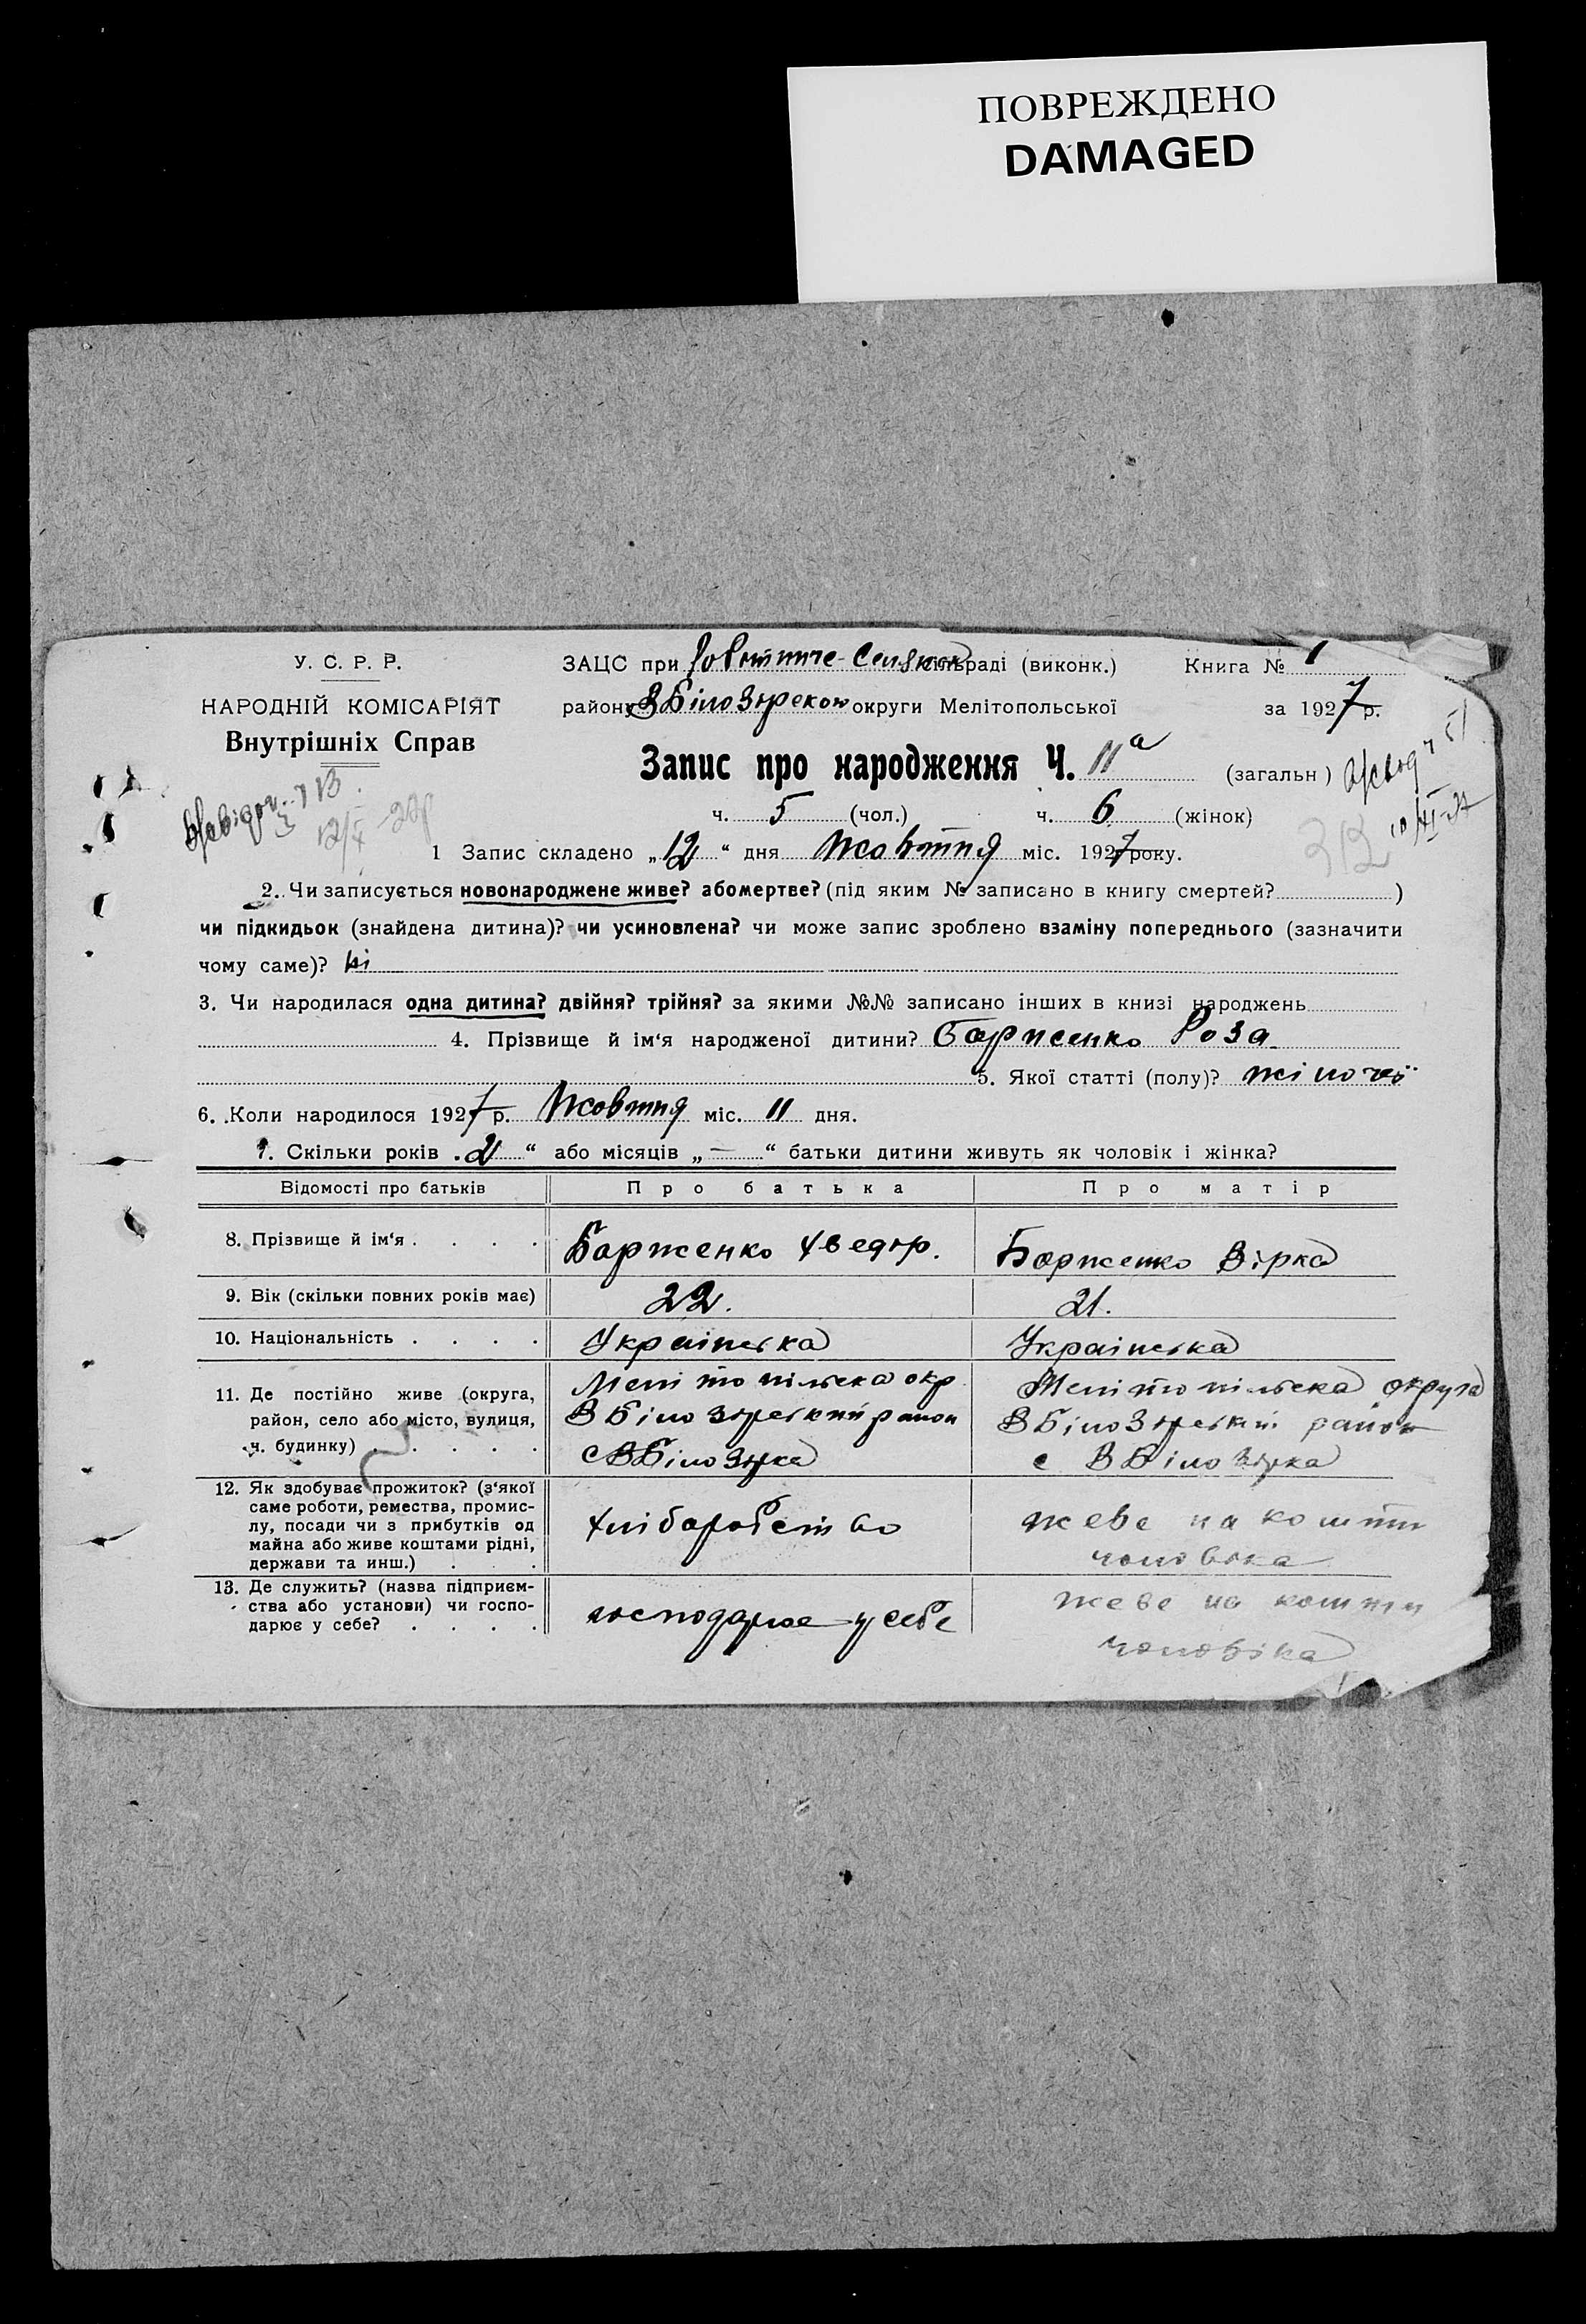 ПОВРЕЖДЕНО
DAMAGED
У. С. Р. Р.
НАРОДНІЙ КОМІСАРІЯТ
Внутрішніх Справ
ЗАЦС при сільраді (виконк.) Книга № 1
району ВБілозірском округи Мелітопольської за 1927 р.
Запис про народження Ч. 11а (загальн)
ч. 5 (чол.) ч. 6 (жінок)
1 Запис складено „12“ дня Жовтня міс. 1927 року.
2. Чи записується новонароджене живе? або мертве? (під яким № записано в книгу смертей? )
чи підкидьок (знайдена дитина)? чи усиновлена? чи може запис зроблено взаміну попереднього (зазначити
чому саме)? ні
3. Чи народилася одна дитина? двійня? трійня? за якими №№ записано інших в книзі народжень
4. Прізвище й ім‘я народженої дитини? Барженко Роза
5. Якої статті (полу)? жіночої
6. Коли народилося 1927 р. Жовтня міс. 11 дня.
7. Скільки років „2“ або місяців „—“ батьки дитини живуть як чоловік і жінка?
Відомості про батьків Про батька Про матір
8. Прізвище й ім‘я . . . . Барженко Хведір. Барженко Вірка
9. Вік (скільки повних років має) 22. 21.
10. Національність . . . . Українська Українська
11. Де постійно живе (округа, Мелітопільска окр Мелітопільска округа
район, село або місто, вулиця, ВБілозірський район ВБілозірский район
ч. будинку) . . . . . с ВБілозірка с ВБілозірка
12. Як здобуває прожиток? (з‘якої
саме роботи, ремества, промис-
лу, посади чи з прибутків од хліборобство жеве на кошти
майна або живе коштами рідні, чоловіка
держави та инш.) . .
13. Де служить? (назва підприєм-
ства або установи) чи госпо- господарює у себе жеве на кошти
дарює у себе? . . . . чоловіка